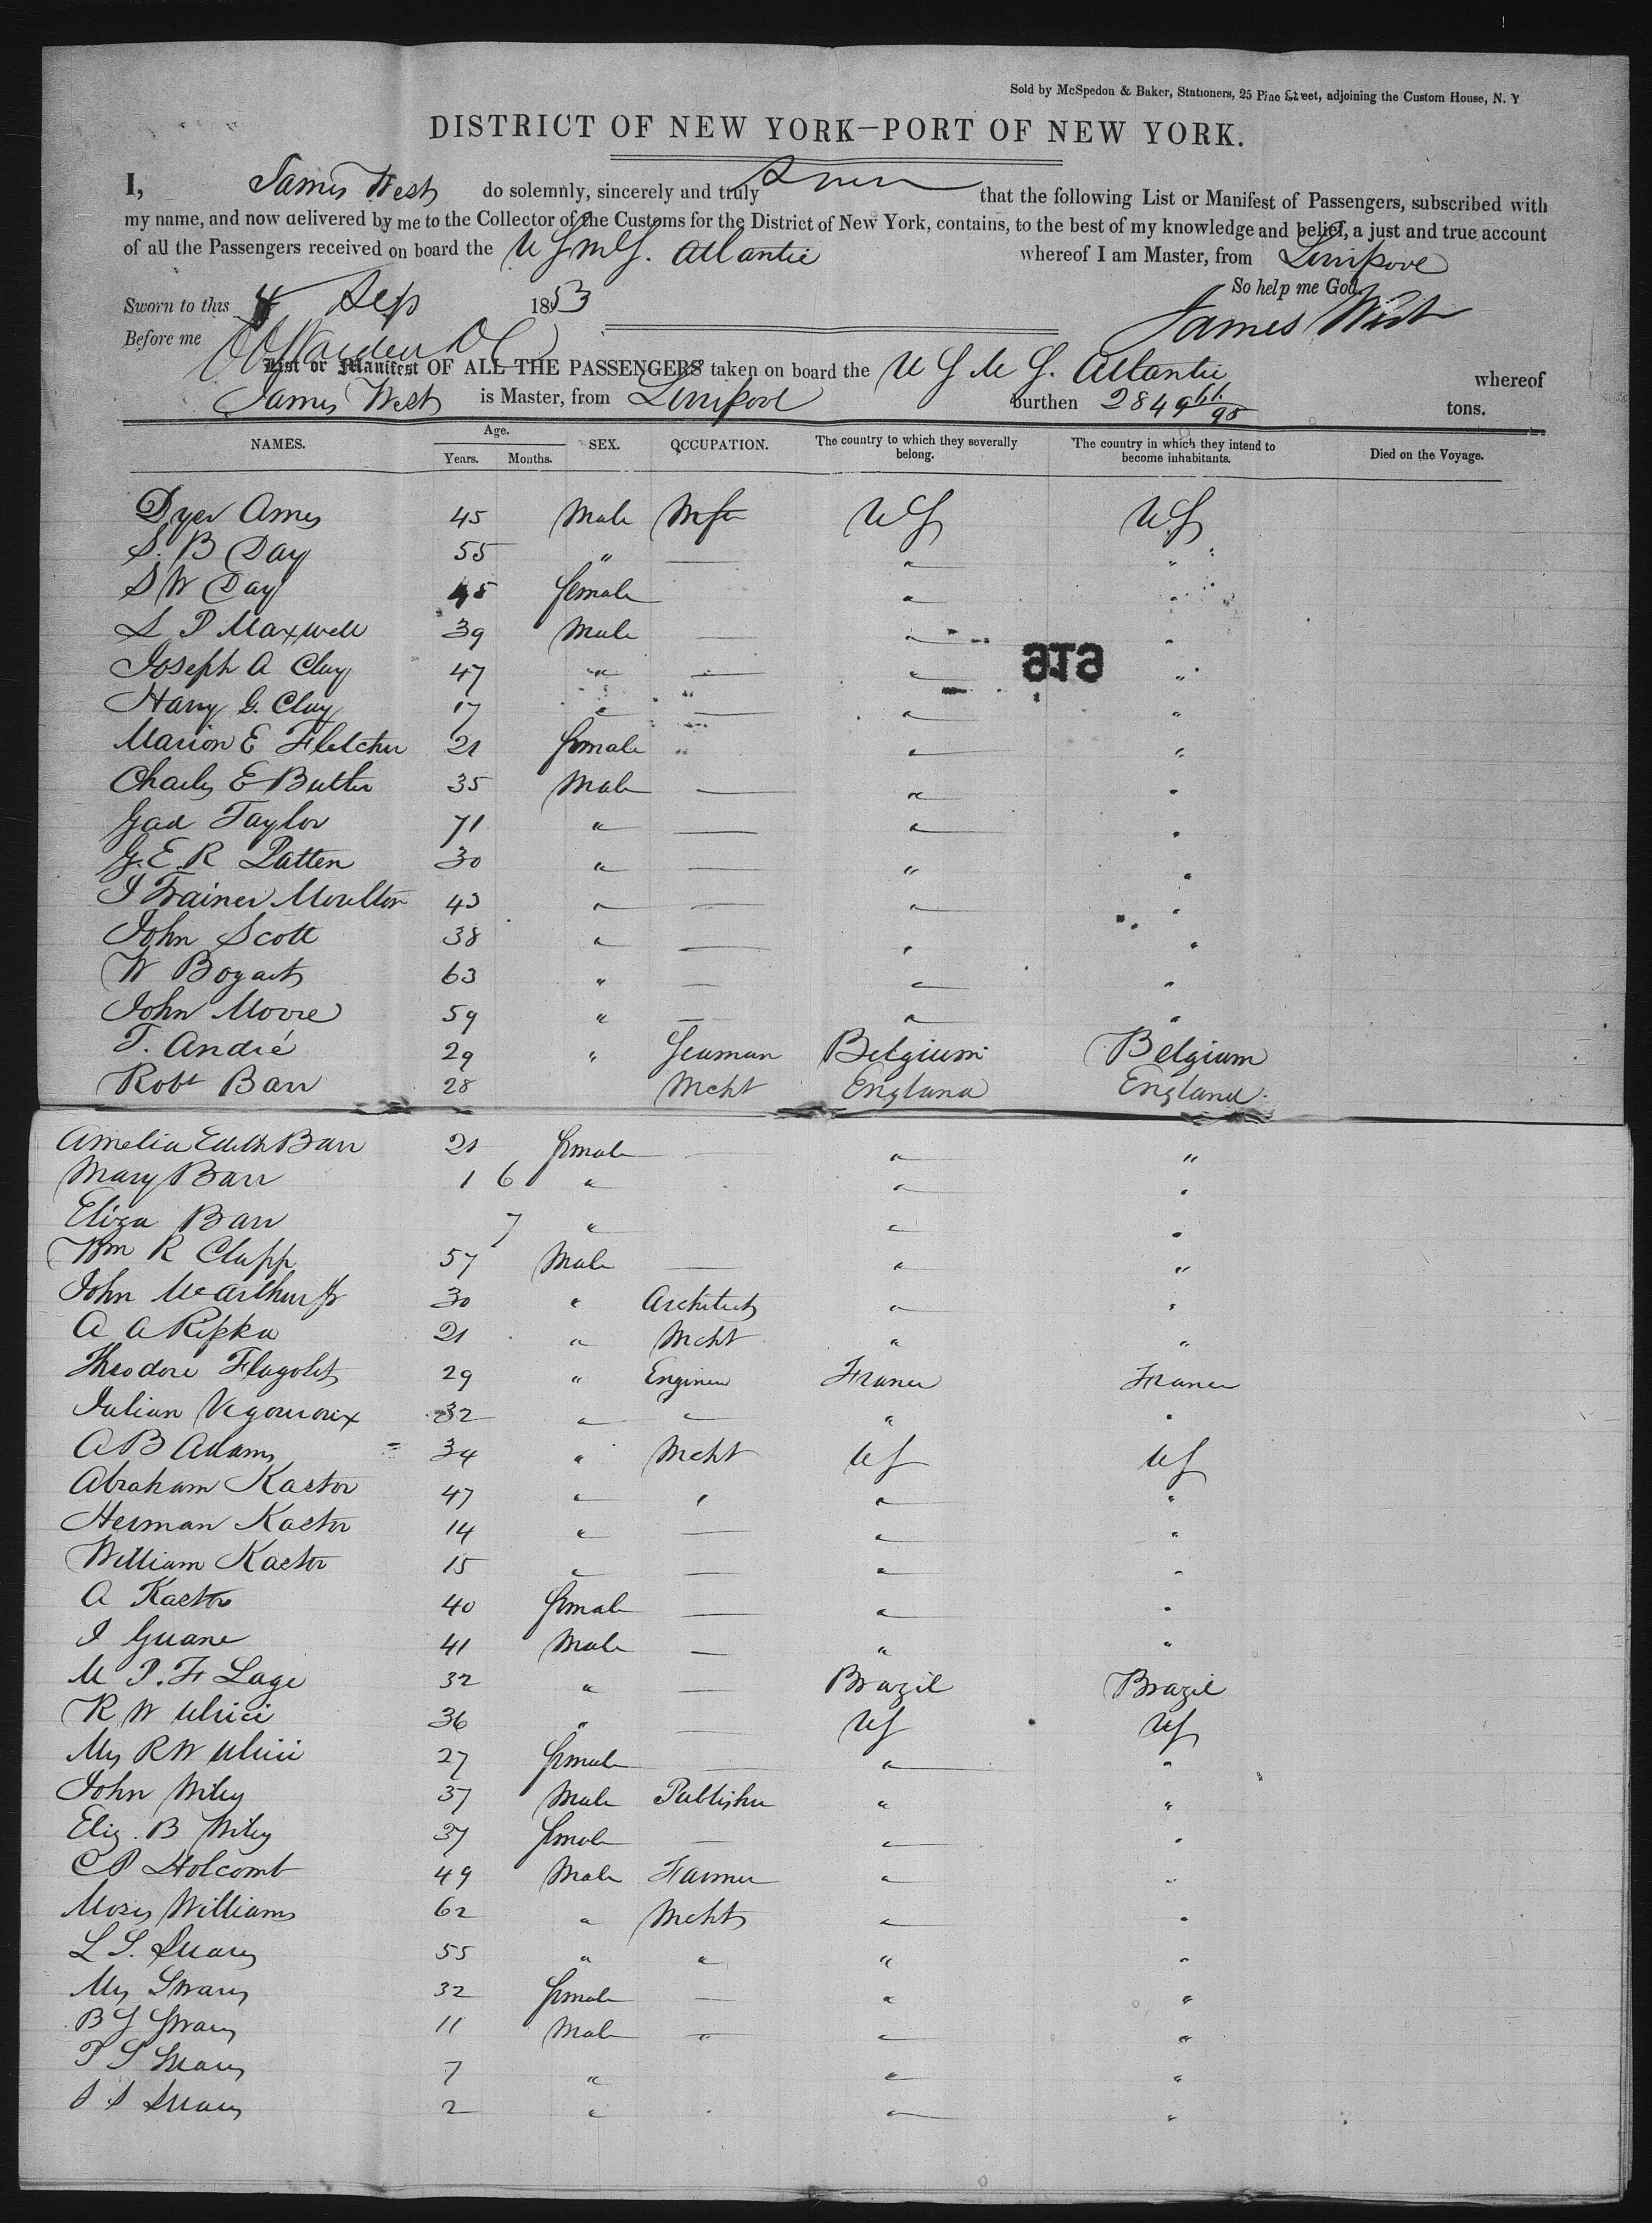 Sold by McSpedon & Baker, Stationers, 25 Pine Street, adjoining the Custom House, N. Y
DISTRICT OF NEW YORK—PORT OF NEW YORK.
I, James West do solemnly, sincerely and truly Swear that the following List or Manifest of Passengers, subscribed with
my name, and now delivered by me to the Collector of the Customs for the District of New York, contains, to the best of my knowledge and belief, a just and true account
of all the Passengers received on board the U S M S. Atlantic whereof I am Master, from Liverpool
So help me God.
Sworn to this 4 Sep 1853 James West
Before me
List or Manifest OF ALL THE PASSENGERS taken on board the U S M S. Atlantic whereof
James West is Master, from Liverpool burthen 2849 66/95 tons.
NAMES. Age. Years. Months. SEX. OCCUPATION. The country to which they severally belong. The country in which they intend to become inhabitants. Died on the Voyage.
Dyer Ames 45 Male Mfr US US
S. B Day 55 " — " "
S W Day 45 female " "
L P Maxwell 39 Male — " "
Joseph A Clay 47 " — " "
Harry G. Clay 17 " — " "
Marion E Fletcher 21 female " " "
Charles E Butler 35 Male — " "
Gad Taylor 71 " — " "
G. E R Patten 30 " — " "
J Trainer Moulton 43 " — " "
John Scott 38 " — " "
W Bogart 63 " — " "
John Moore 59 " — " "
T. André 29 " Seaman Belgium Belgium
Robt Barr 28 Mcht England England
Amelia Edith Barr 21 female — " "
Mary Barr 1 6 " " "
Eliza Barr 7 " " "
Wm R Clapp 57 Male — " "
John McArthur Jr 30 " Architect " "
A A Ripka 21 " Mcht " "
Theodore Flagolet 29 " Engineer France France
Julian Vigouroux 32 " " " "
A B Adams 34 " Mcht US US
Abraham Kastor 47 " " " "
Herman Kastor 14 " — " "
William Kastor 15 " — " "
A Kastor 40 female — " "
J Guane 41 Male — " "
M P. F Lage 32 " — Brazil Brazil
R W Ulrici 36 " — US US
Mrs R W Ulrici 27 female — " "
John Wiley 37 Male Publisher " "
Eliz. B Wiley 37 female — " "
C P Holcomb 49 Male Farmer " "
Moses Williams 62 " Mcht " "
L S. Suarez 55 " " " "
Mrs Suarez 32 female — " "
B S Suarez 11 Male " " "
P S Suarez 7 " " "
S S Suarez 2 " " "